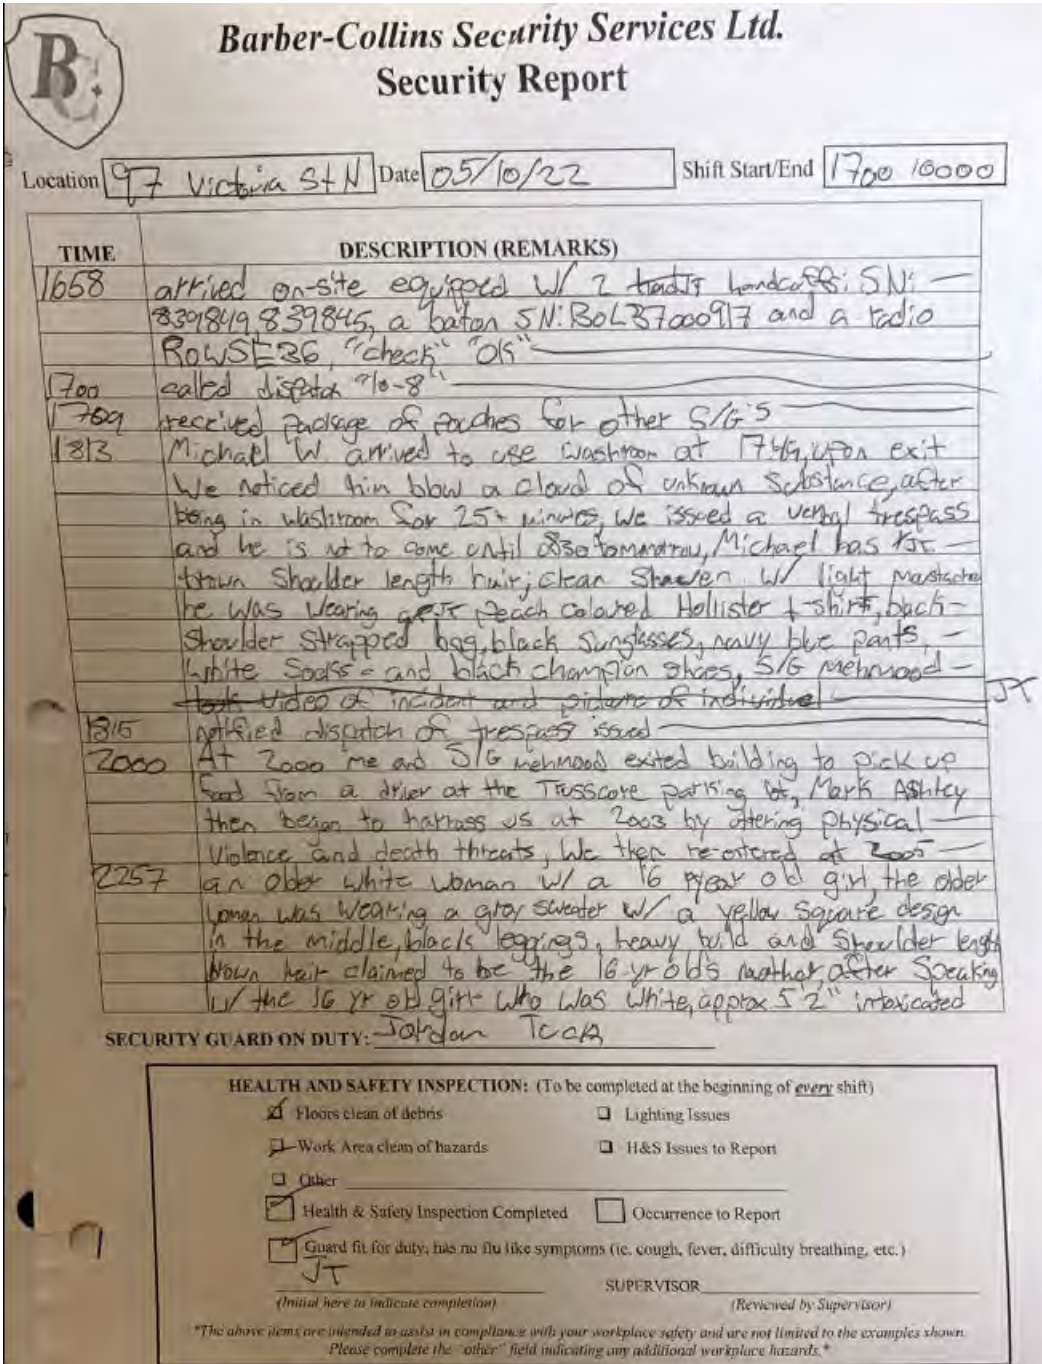 BC
Barber-Collins Security Services Ltd.
Security Report
Location 97 Victoria St N Date 05/10/22 Shift Start/End 1700 10000
TIME DESCRIPTION (REMARKS)
1658 arrived on-site equipped w/ 2 handcuffs; SN:
839849, 839845, a baton SN: BOL37000917 and a radio
ROWSE36, "check" "OK"
1700 called dispatch "10-8"
1709 received package of pouches for other S/G'S
1813 Michael W. arrived to use washroom at 1746, upon exit
We noticed him blow a cloud of unknown substance, after
being in washroom for 25+ minutes, we issued a verbal trespass
and he is not to come until 0830 tommorrow, Michael has
brown shoulder length hair; clean shaven w/ light mustache
he was wearing peach colored Hollister t-shirt, black
shoulder strapped bag, black sunglasses, navy blue pants,
white socks - and black champion shoes, S/G Mehmood
took video of incident and picture of individual JT
1815 notified dispatch of trespass issued
2000 At 2000 me and S/G mehmood exited building to pick up
food from a driver at the Trusscore parking lot, Mark Ashley
then began to harrass us at 2003 by uttering physical
violence and death threats, we then re-entered at 2005
2257 an older white woman w/ a 16 year old girl, the older
woman was wearing a gray sweater w/ a yellow square design
in the middle, black leggings, heavy build and shoulder length
brown hair claimed to be the 16 yr old's mother, after speaking
w/ the 16 yr old girl who was white, approx 5'2" intoxicated
SECURITY GUARD ON DUTY: Jordan
HEALTH AND SAFETY INSPECTION: (To be completed at the beginning of every shift)
Floors clean of debris Lighting Issues
Work Area clean of hazards H&S Issues to Report
Other
Health & Safety Inspection Completed Occurrence to Report
Guard fit for duty, has no flu like symptoms (ie. cough, fever, difficulty breathing, etc.)
JT SUPERVISOR
(Initial here to indicate completion) (Reviewed by Supervisor)
*The above items are intended to assist in compliance with your workplace safety and are not limited to the examples shown.
Please complete the "other" field indicating any additional workplace hazards.*